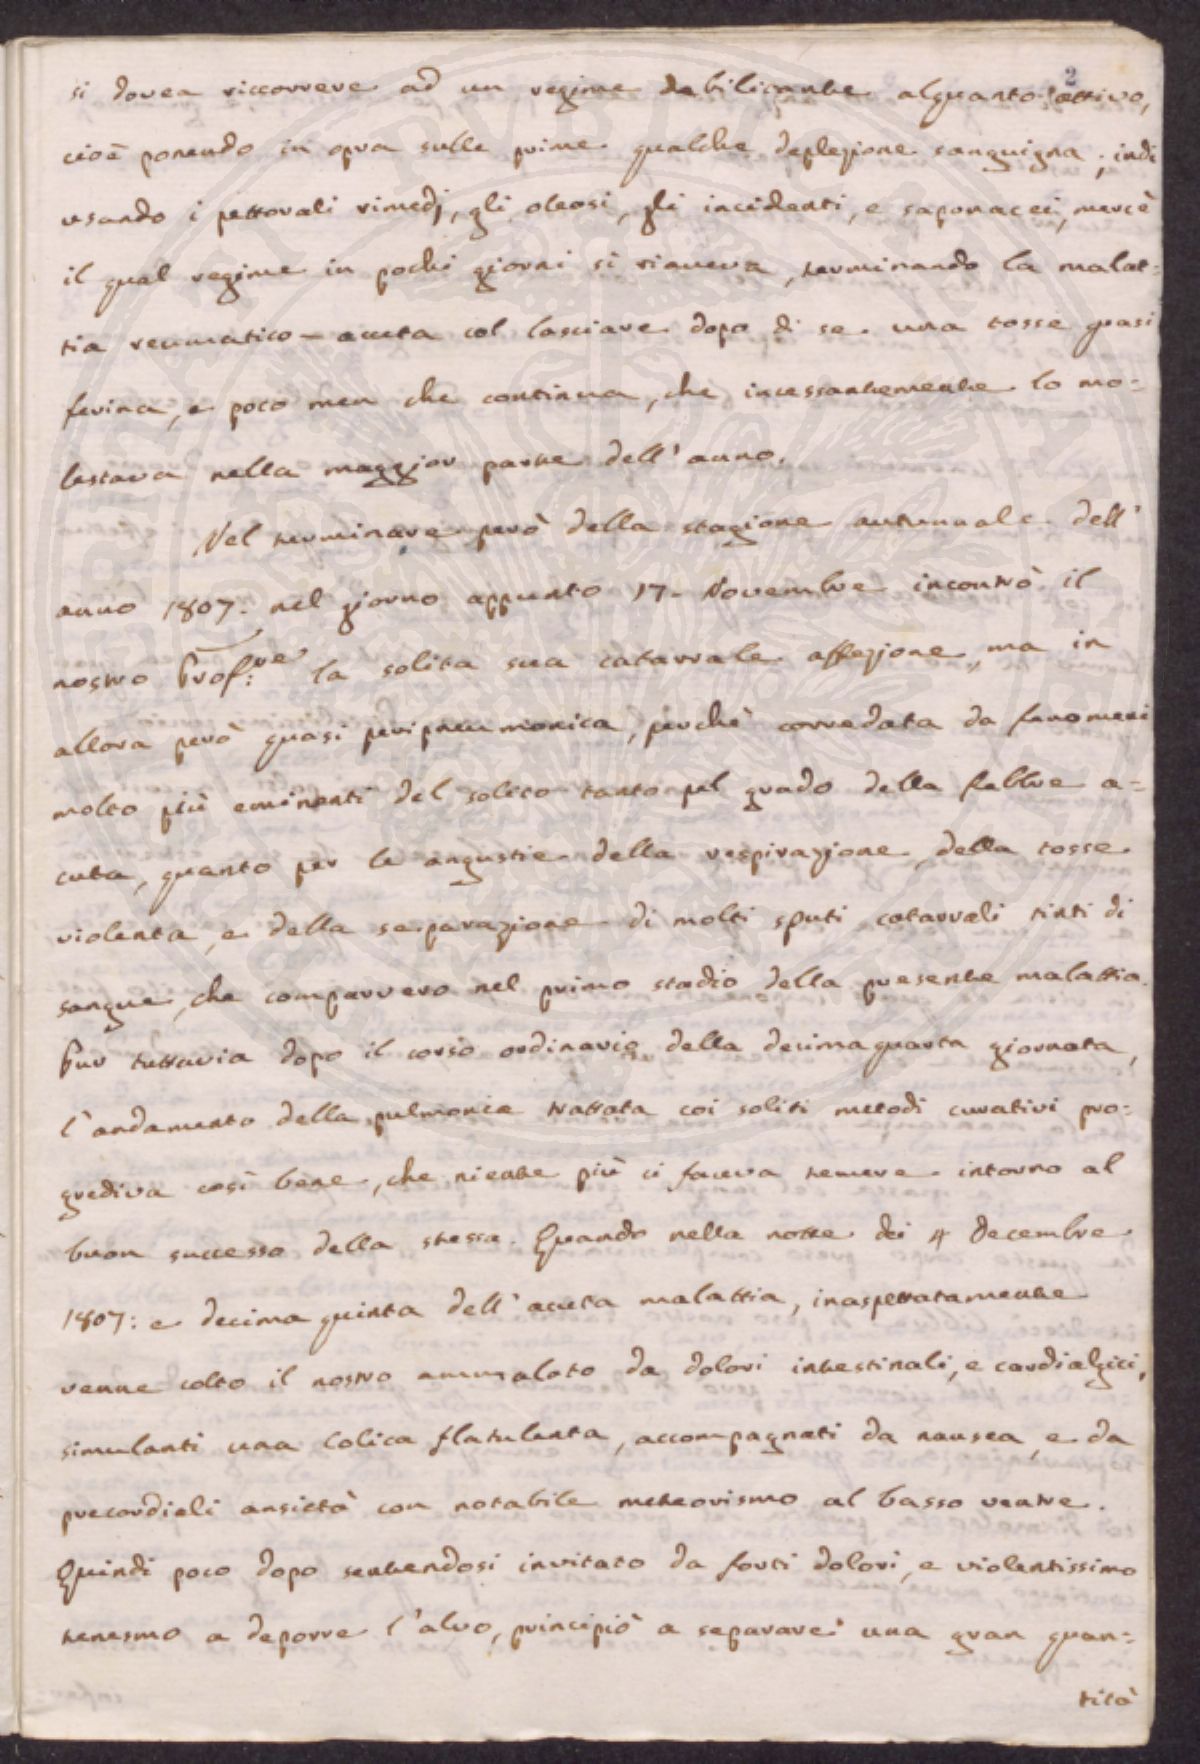 2
si dovea riccorrere ad un regime debilitante alquanto attivo,
cioè ponendo in opra sulle prime qualche deplezione sanguigna; indi
usando i pettorali rimedj, gli oleosi, gli incidenti, e saponacei, mercè
il qual regime in pochi giorni si riaveva, terminando la malat=
tia reumatico-acuta col lasciare dopo di se una tosse quasi
ferina, e poco men che continua, che incessantemente lo mo=
lestava nella maggior parte dell'anno.
Nel terminare però della stagione autunnale dell'
anno 1807. nel giorno appunto 17. Novembre incontrò il
nostro Prof:re la solita sua catarrale affezione, ma in
allora però quasi peripneumonica, perchè corredata da fenomeni
molto più eminenti del solito tanto pel grado della febbre a=
cuta, quanto per le angustie della respirazione, della tosse
violenta, e della separazione di molti sputi catarrali tinti di
sangue, che comparvero nel primo stadio della presente malattia.
Pur tuttavia dopo il corso ordinario della decimaquarta giornata,
l'andamento della pulmonia trattata coi soliti metodi curativi pro=
grediva così bene, che niente più ci faceva temere intorno al
buon successo della stessa. Quando nella notte dei 4 Decembre
1807: e decima quinta dell'acuta malattia, inaspettatamente
venne colto il nostro ammalato da dolori intestinali, e cardialgici,
simulanti una Colica flatulenta, accompagnati da nausea, e da
precordiali ansietà con notabile meteorismo al basso ventre.
Quindi poco dopo sentendosi invitato da forti dolori, e violentissimo
tenesmo a deporre l'alvo, principiò a separare una gran quan=
tità